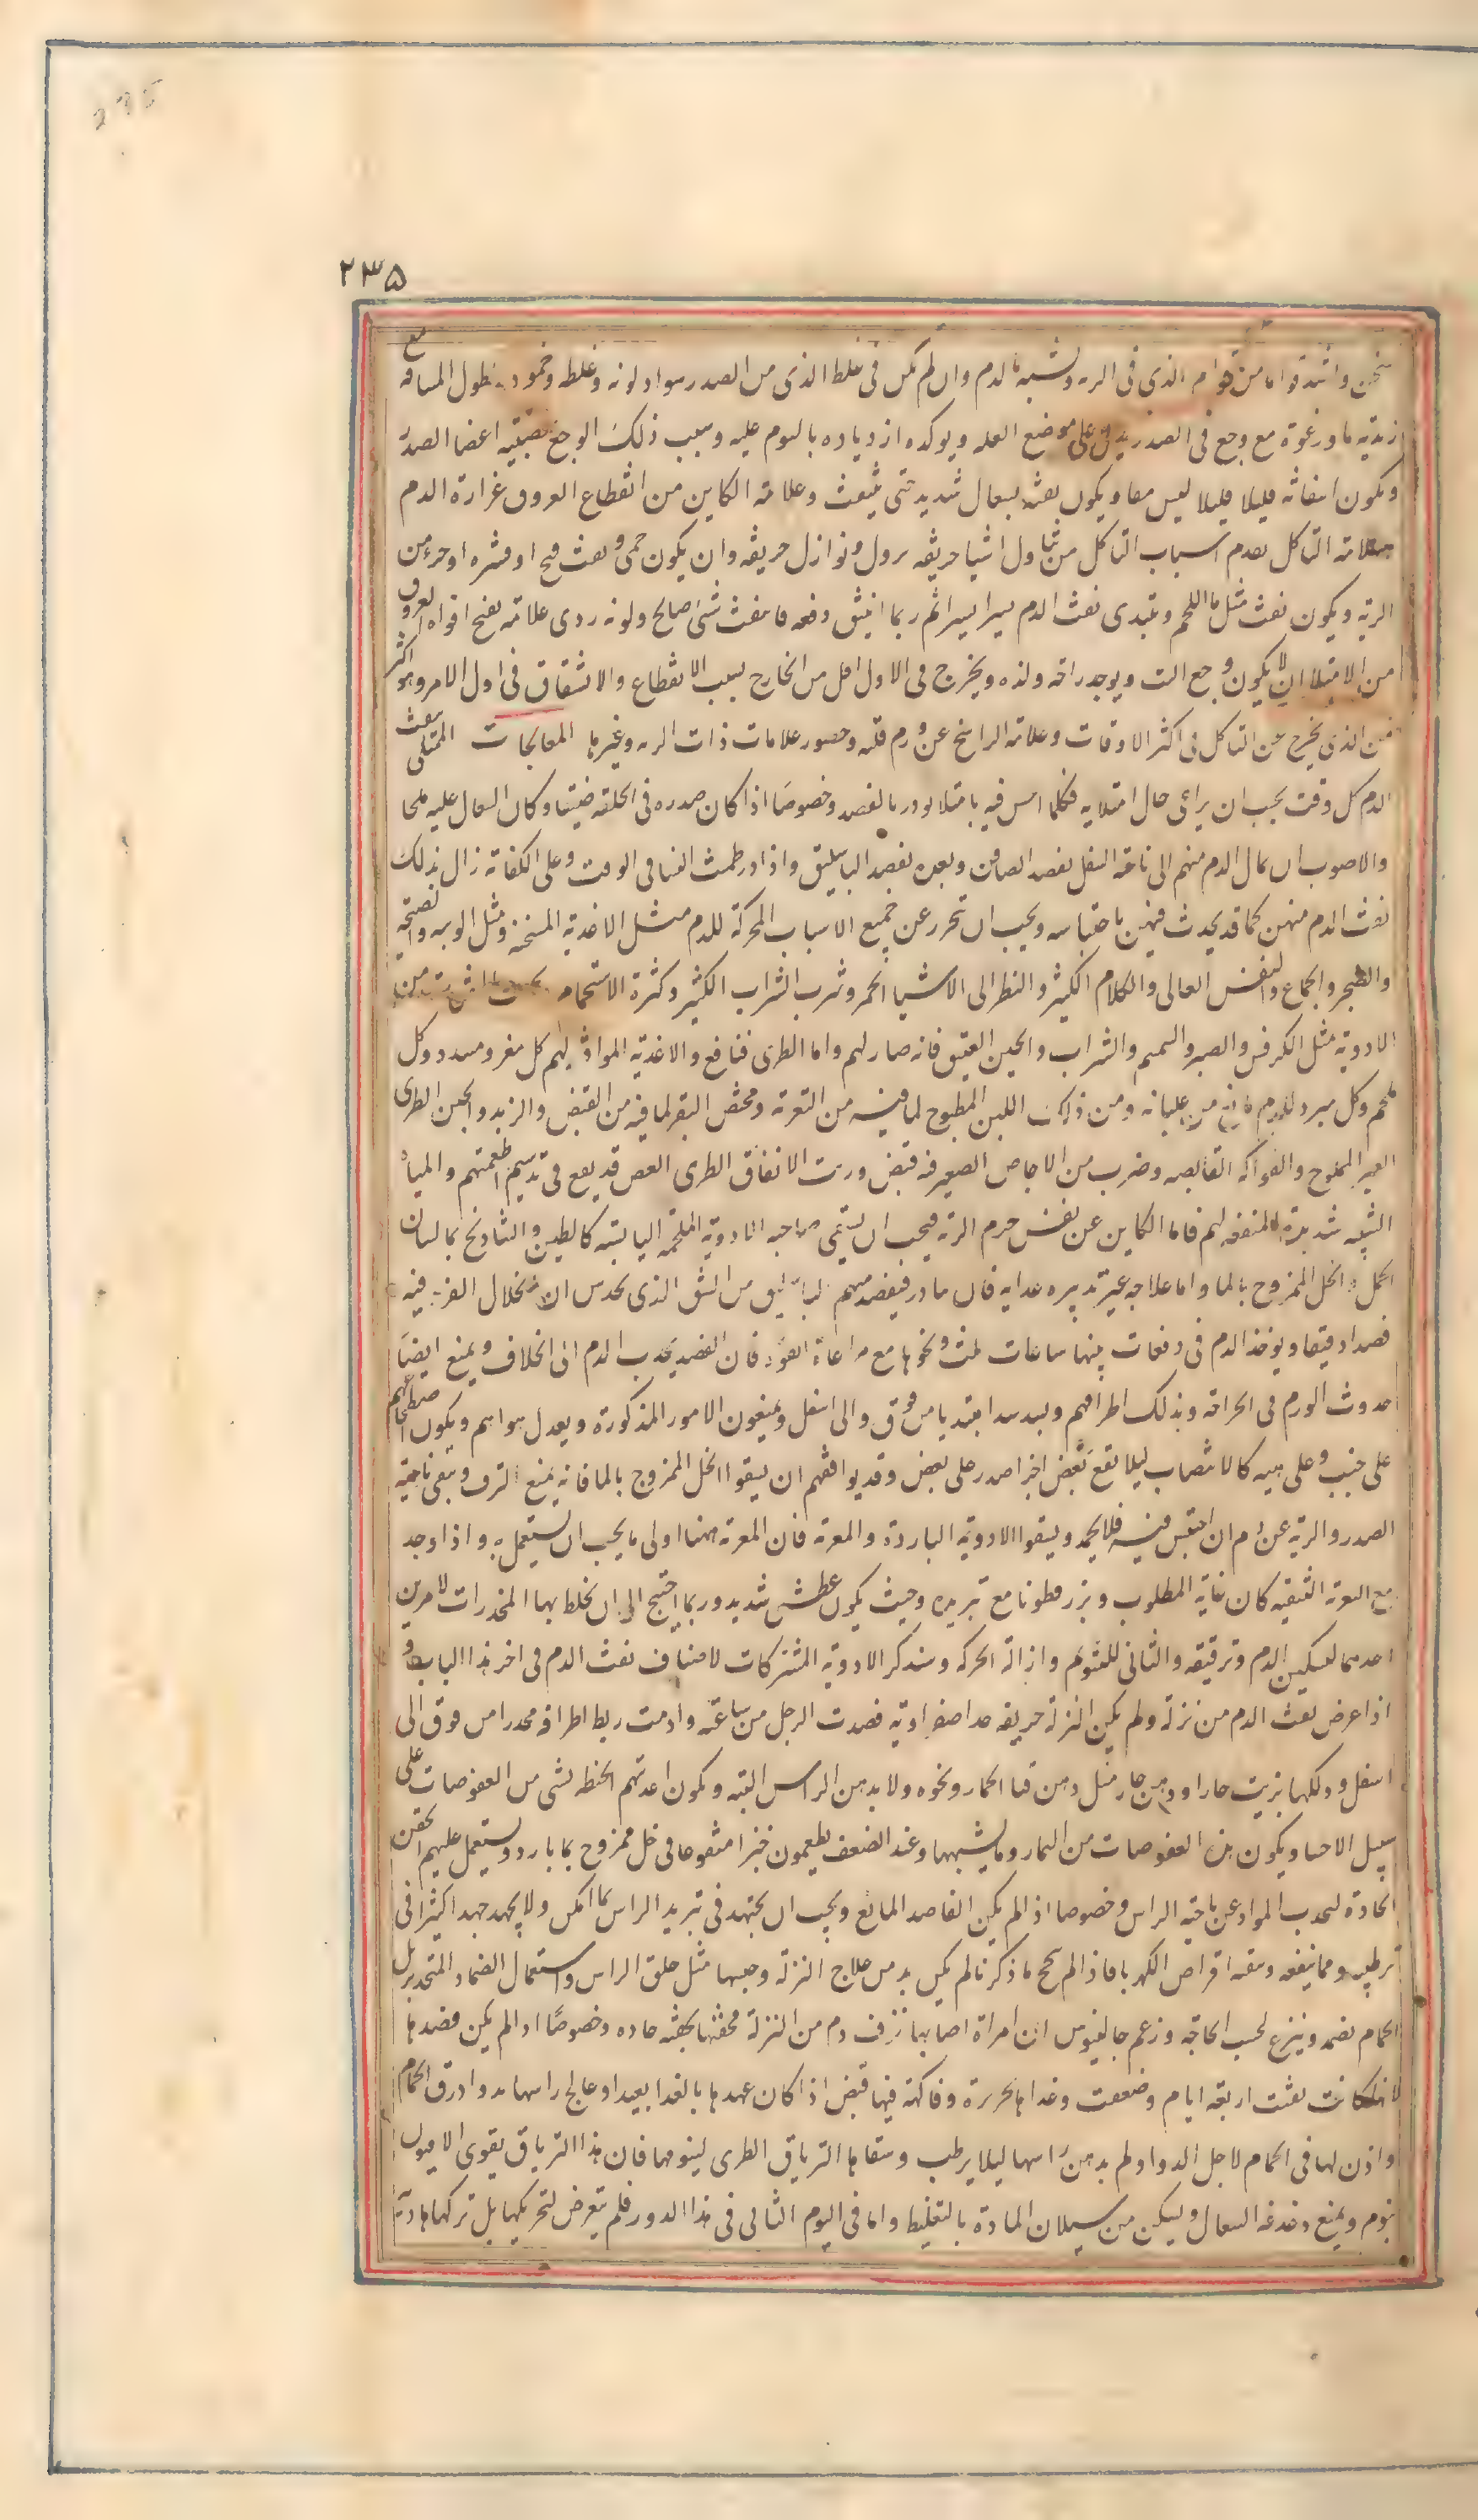 ٢٣٥
واشد قواما من قوام الذى فى الريه وشبيه بالدم وان لم يكن فى غلظ الذى من الصدر سواد لونه وغلظه وجموده لطول المسافه مع
زبديه ما ورغوة مع وجع فى الصدر يدل على موضع العله ويوكده ازدياده بالنوم عليه وسبب ذلك الوجع عصبيه اعضا الصدر
ويكون انتفاثه قليلا قليلا ليس معا ويكون نفثه بسعال شديد حتى ينفث وعلامة الكاين من انقطاع العروق غزارة الدم
وعلامة التاكل تقدم اسباب التاكل من تناول اشيا حريفه ونزول نوازل حريفه وان يكون حمى ونفث قيح او قشره او جزء من
الرية ويكون نفث مثل ما اللحم ويبتدى نفث الدم يسيرا يسيرا ثم ربما انبثق دفعه فانتفث شى صالح ولونه ردى علامة تفتح افواه العروق
من الامتلا ان لا يكون وجع البته ويوجد راحه ولذه ويخرج فى الاول اقل من الخارج بسبب الانقطاع والانشقاق فى اول الامر وهو اكثر
من الذى يخرج عن التاكل فى اكثر الاوقات وعلامة الراشح عن ورم قلته وحضور علامات ذات الريه وغيرها المعالجات المبتلى بنفث
الدم كل وقت يجب ان يراعى حال امتلايه فكلما احس فيه بامتلا بودر بالفصد وخصوصا اذا كان صدره فى الخلقه ضيقا وكان السعال عليه ملحا
والاصوب ان يمال الدم منهم الى ناحيه السفل بفصد الصافن وبعده بفصد الباسليق واذا در طمث النسا فى الوقت وعلى الكفاية زال بذلك
نفث الدم منهن كما قد يحدث فيهن باحتباسه ويجب ان يتحرز عن جميع الاسباب المحركة للدم مثل الاغذية المسخنه ومثل الوثبه والصيحه
والضجر والجماع والنفس العالى والكلام الكثير والنظر الى الاشيا الحمر وشرب الشراب الكثير وكثرة الاستحمام
الادوية مثل الكرفس والصبر والسمسم والشراب والجبن العتيق فانه ضار لهم واما الطرى فنافع والاغذية الموافقة لهم كل مغر ومسدد وكل
ملحم وكل مبرد للدم مانع من غليانه ومن ذلك اللبن المطبوخ لما فيه من التغرية ومخيض البقر لما فيه من القبض والزبد والجبن الطرى
الغير المملوح والفواكه القابضه وضرب من الاجاص الصغير فيه قبض وزيت الانفاق الطرى العصر قد يقع فى تدسيم اطعمتهم والمياه
الشبيه شديدة المنفعه لهم فاما الكاين عن نفس جرم الريه فيجب ان يسقى صاحبه الادوية الملحمة اليابسه كالطين والشادنج بما لسان
الحمل والخل الممزوج بالما واما علاجه عند تدبيره غذايه فان بادر فيفصد منهم الباسليق من الشق الذى يحدس ان انحلال الفرد فيه
فصدا دقيقا ويوخذ الدم فى دفعات بينها ساعات ثلث ونحوها مع مراعاة القوه فان الفصد يجذب الدم الى الخلاف ويمنع ايضا
حدوث الورم فى الجراحة وبذلك اطرافهم ويشد شدا مبتديا من فوق والى اسفل ويمنعون الامور المذكورة ويعدل هواهم ويكون اضطجاعهم
على جنب وعلى هييه كالانتصاب ليلا تقع بعض اجزا صدر على بعض وقد يوافقهم ان يسقوا الخل الممزوج بالما فانه يمنع النزف وينقى ناحيه
الصدر والريه عن دم ان احتبس فيه فلا يجمد ويسقوا الادوية الباردة والمغرية فان المغرية ههنا اولى ما يجب ان يستعمل به واذا وجد
مع التغرية التنقيه كان غاية المطلوب وبزر قطونا مع تبريده وحيث يكون عطش شديد وربما احتيج الى ان يخلط بها المخدرات لامرين
احدهما لتسكين الدم وترقيقه والثانى للتنويم وازالة الحركه وسنذكر الادوية المشتركات لاصناف نفث الدم فى اخر هذا الباب و
اذا عرض نفث الدم من نزلة ولم يكن النزلة حريفه حدا صفراوية فصدت الرجل من ساعته وادمت ربط اطرافه محدرا من فوق الى
اسفل ودلكها بزيت حار او دهن حار مثل دهن قثا الحمار ونحوه ولا يدهن الراس البته ويكون اغذيتهم الحنطه بشى من العفوصات على
سبيل الاحسا ويكون هذه العفوصات من الثمار وما يشبهها وعند الضعف يطعمون خبزا منقوعا فى خل ممزوج بما بارد ويستعمل عليهم الحقن
الحادة لتجذب المواد عن ناحية الراس وخصوصا اذا لم يكن الفاصد المانع ويجب ان يجتهد فى تبريد الراس بما امكن ولا يجهد جهدا كثيرا فى
ترطيبه ومما ينفعه سقيه اقراص الكهربا فاذا لم ينجح ما ذكرنا لم يكن بد من علاج النزلة وحبسها مثل حلق الراس واستعمال الضماد المتخذ بزبل
الحمام يضمد وينزع بحسب الحاجة وزعم جالينوس ان امراة اصابها نزف دم من النزلة فحقنها بحقنه حاده وخصوصا اذا لم يكن فصدها
لانها كانت نفثت اربعة ايام وضعفت وغذاها بحريرة وفاكهة فيها قبض اذا كان عهدها بالغذا بعيدا وعالج راسها بدوا ذرق الحمام
واذن لها فى الحمام لاجل الدوا ولم يدهن راسها ليلا يرطب وسقاها الترياق الطرى لينومها فان هذا الترياق يقوى الافيون
ينوم ويمنع دغدغة السعال ويسكن من سيلان المادة بالتغليظ واما فى اليوم الثانى فى هذا الدور فلم يتعرض لتحريكها بل تركها هادية